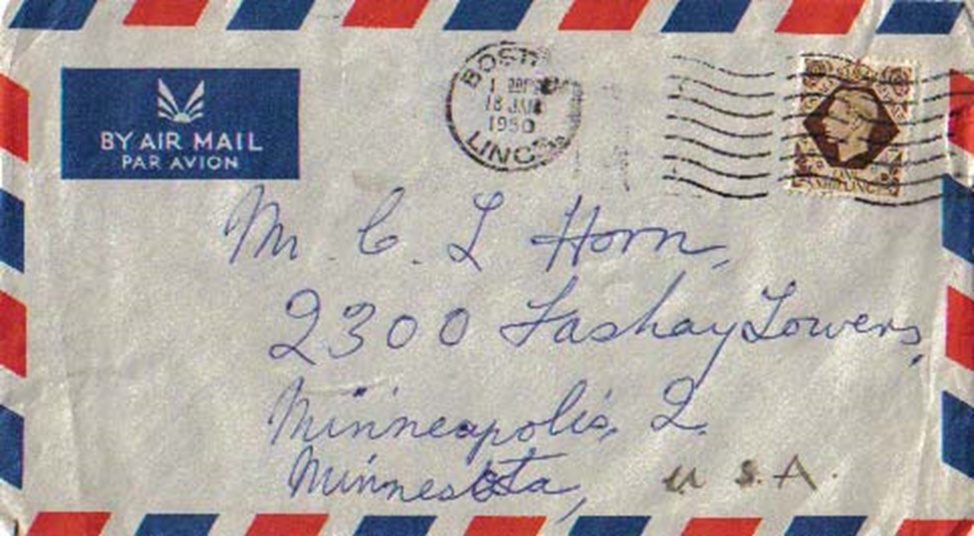 BY AIR MAIL
PAR AVION
BOST
18 JAN
1950
LINCS
Mr. C. L Horn,
2300 Fashay Towers,
Minneapolis, 2.
Minnesota, U.S.A.